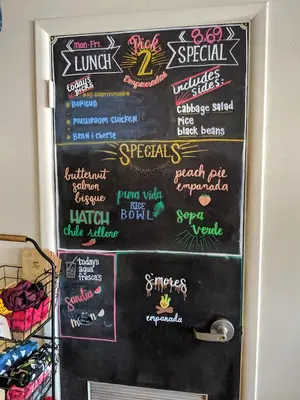 mon-Fri
LUNCH
Pick
2
Empanadas
8.69
SPECIAL
today's
picks
*no substitutions
Boricua
mushroom chicken
Bean & cheese
includes
sides:
cabbage salad
rice
black beans
SPECIALS
butternut
salmon
bisque
HATCH
chile relleno
pura vida
RICE
BOWL
peach pie
empanada
Sopa
verde
today's
agua
fresca's
Sandia
S'mores
empanada